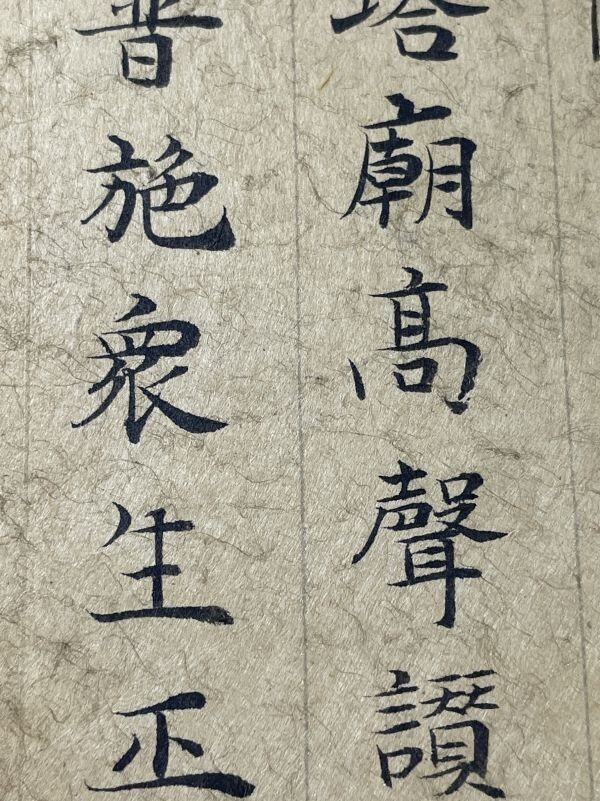 塔廟高聲讃
普施衆生正